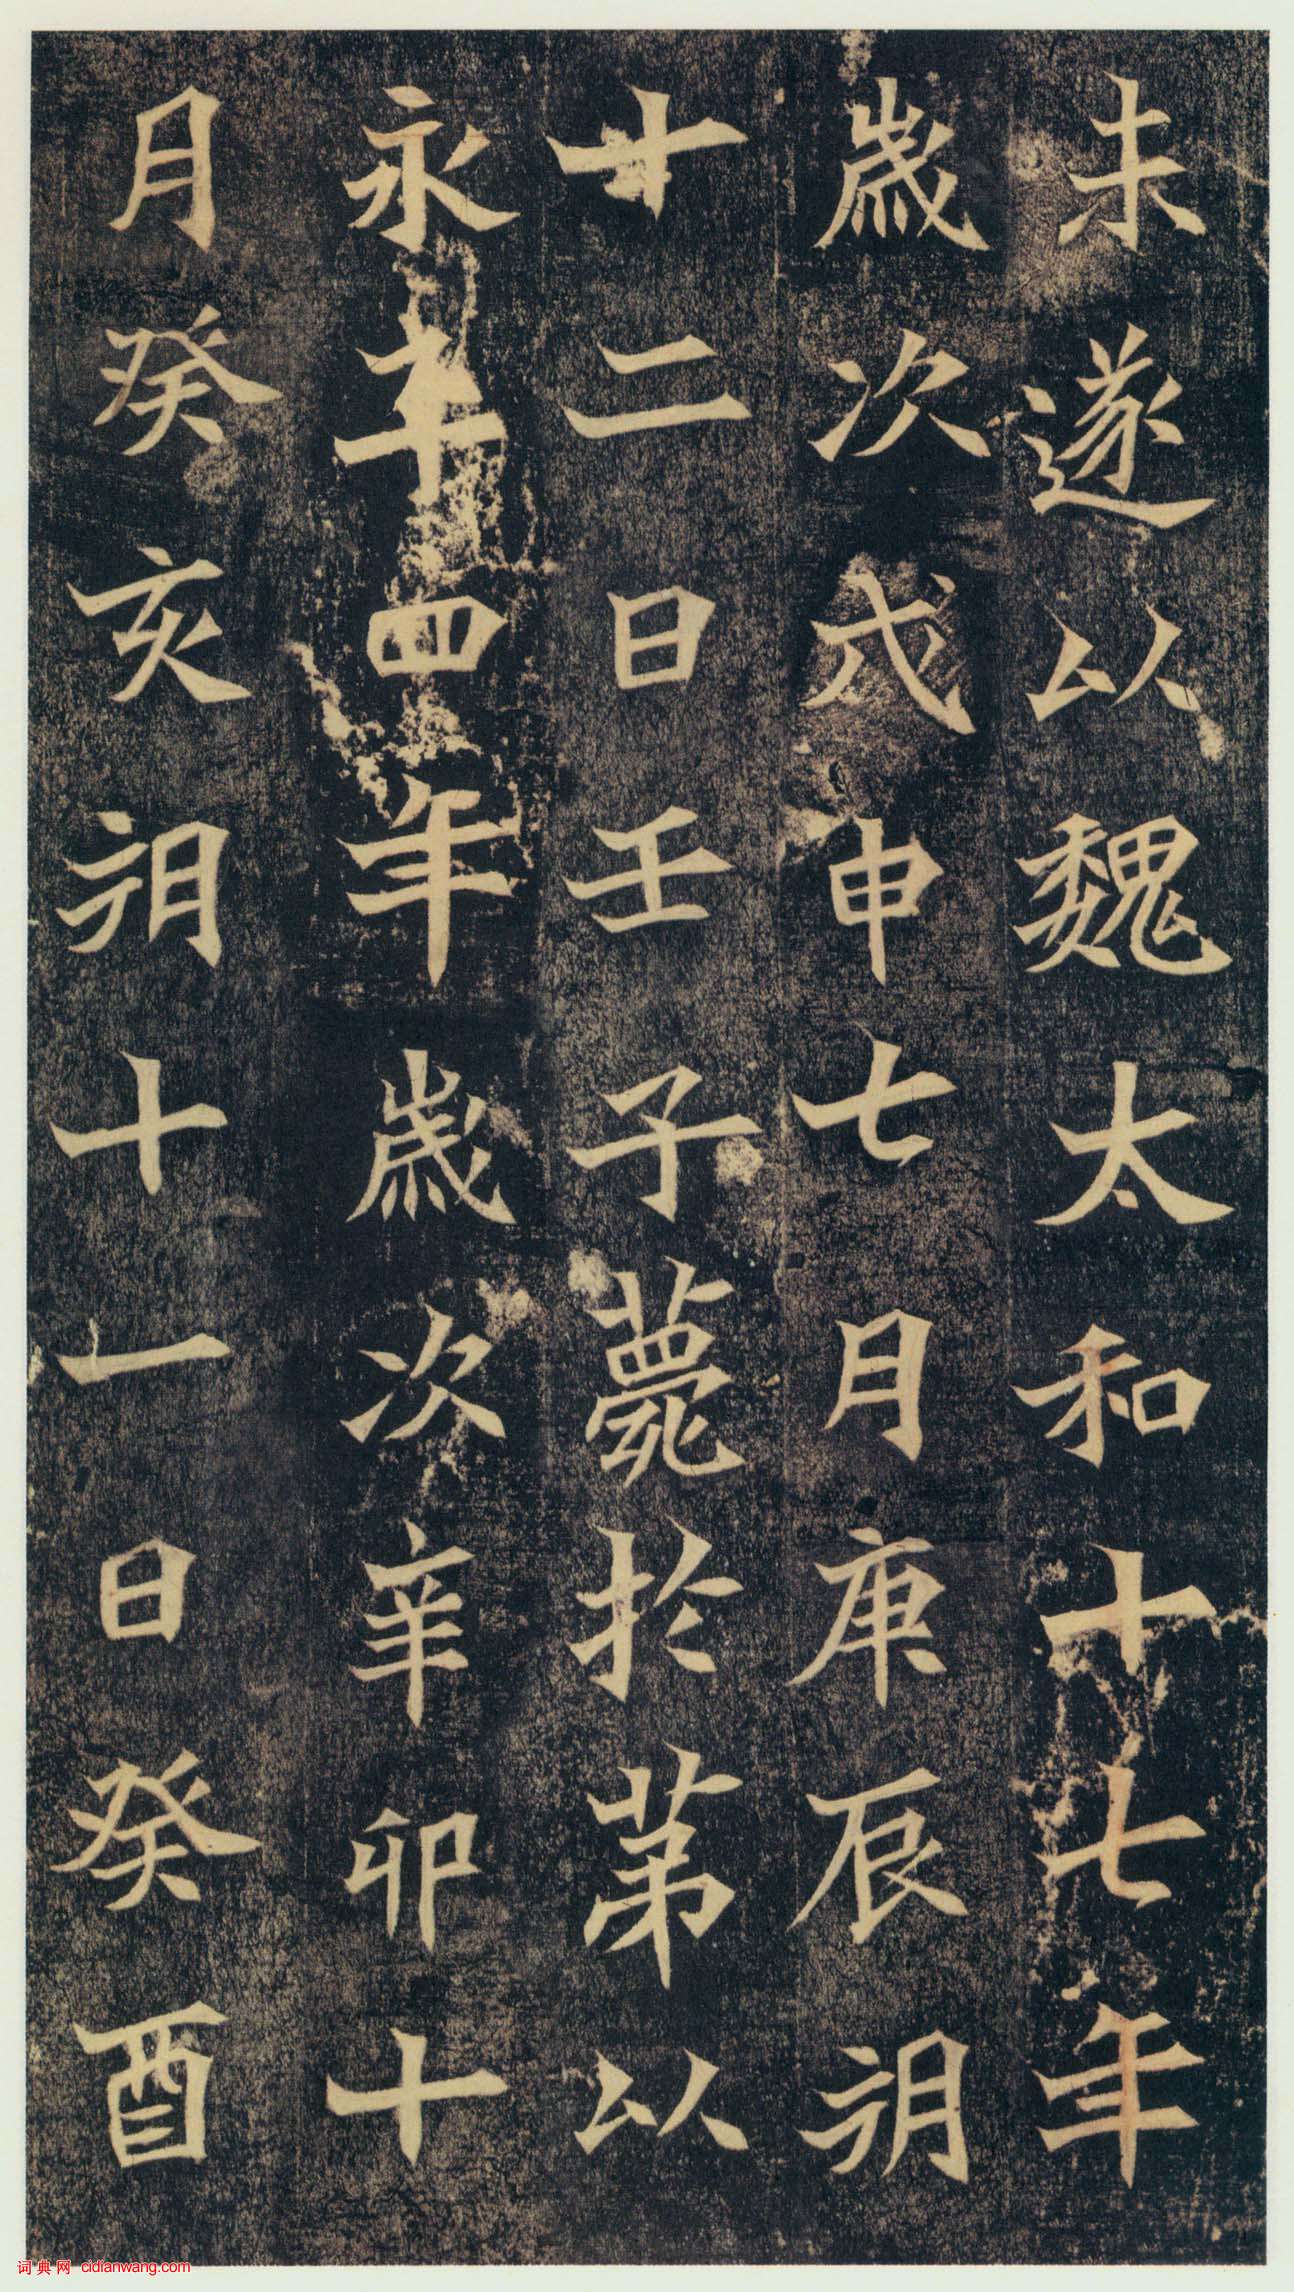 未遂以魏太和十七年
歲次戊申七月庚辰朔
十二日壬子薨於第以
永平四年歲次辛卯十
月癸亥朔十一日癸酉
词典网 cidianwang.com